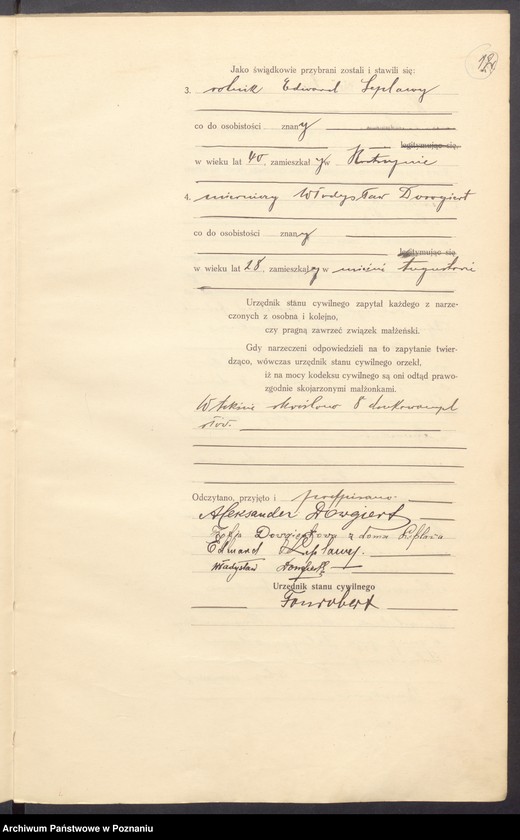 Jako świadkowie przybrani zostali i stawili się:
3. rolnik Edward Lepławy
co do osobistości znany
legitymując się
w wieku lat 40, zamieszkały w
4. mierniczy Władysław Dowgiert
co do osobistości znany
legitymując się
w wieku lat 28, zamieszkały w mieście Augustowie
Urzędnik stanu cywilnego zapytał każdego z narze-
czonych z osobna i kolejno,
czy pragną zawrzeć związek małżeński.
Gdy narzeczeni odpowiedzieli na to zapytanie twier-
dząco, wówczas urzędnik stanu cywilnego orzekł,
iż na mocy kodeksu cywilnego są oni odtąd prawo-
zgodnie skojarzonymi małżonkami.
W tekście skreślono 8 drukowanych
słów.
Odczytano, przyjęto i podpisano
Aleksander Dowgiert
Zofja Dowgiertowa z domu Lepława
Edward Lepławy.
Władysław Dowgiert
Urzędnik stanu cywilnego
Fonrobert
Archiwum Państwowe w Poznaniu